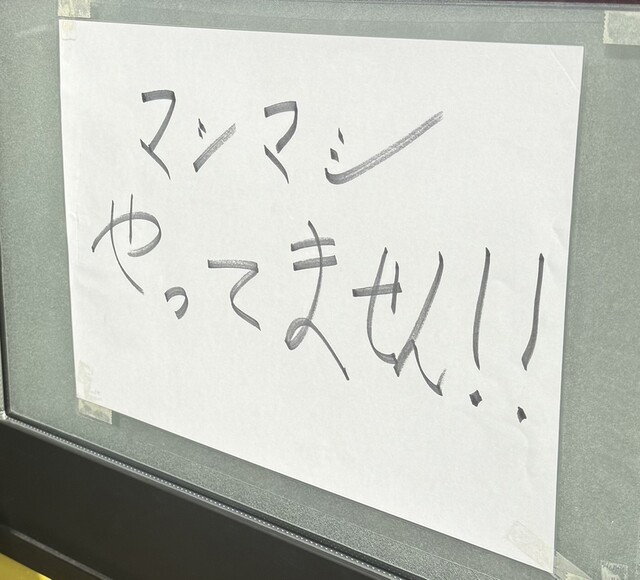 マシマシ
やってません!!